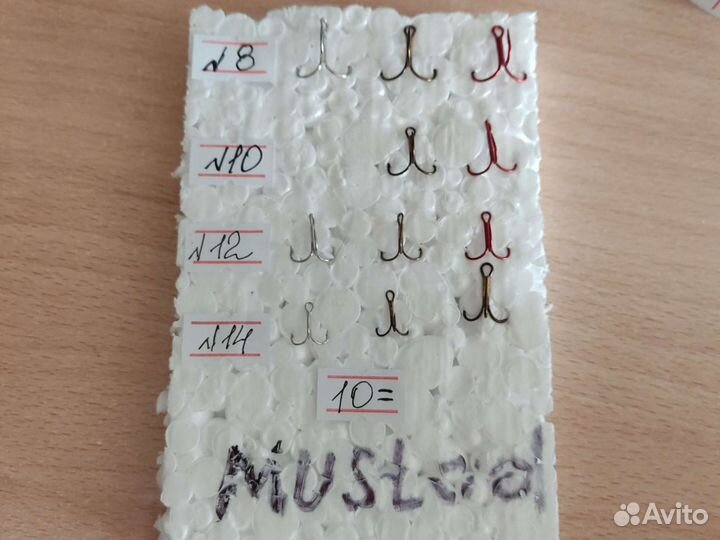 №8
№10
№12
№14
10=
Mustad
Avito